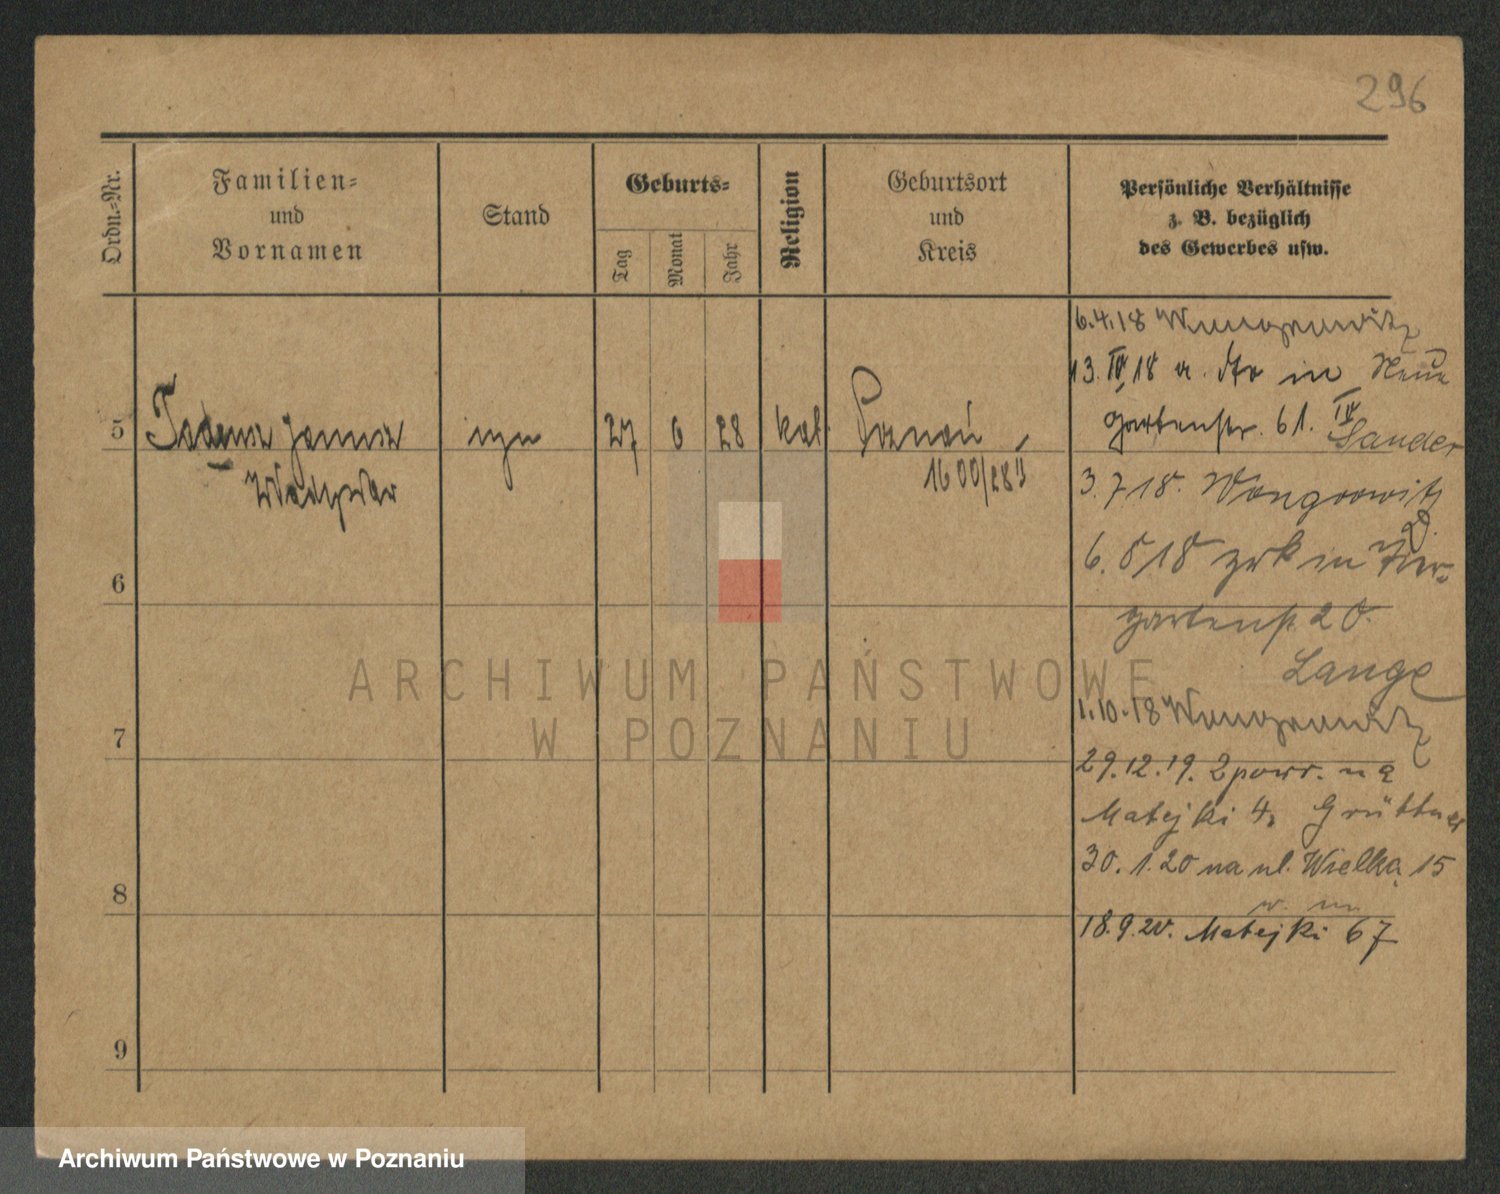 296
Ordn.-Nr.
Familien-
und
Vornamen
Stand
Geburts-
Tag
Monat
Jahr
Religion
Geburtsort
und
Kreis
Persönliche Verhältnisse
z. B. bezüglich
des Gewerbes usw.
6.4.18 Wongrowitz
13.IV.18 a. dto in Neue
Gartenstr. 61. IV
Sander
5
syn
27
6
28
kat.
Poznań
1600/28
3.7.18. Wongrowitz
6.8.18 zrk in Tier-
gartenstr. 20.
Lange
1.10.18 Wongrowitz
29.12.19. Zpowr. na
Matejki 4, Grüttner
30.1.20 na ul. Wielka 15
18.9.20. Matejki 67
6
7
8
9
ARCHIWUM PAŃSTWOWE
W POZNANIU
Archiwum Państwowe w Poznaniu